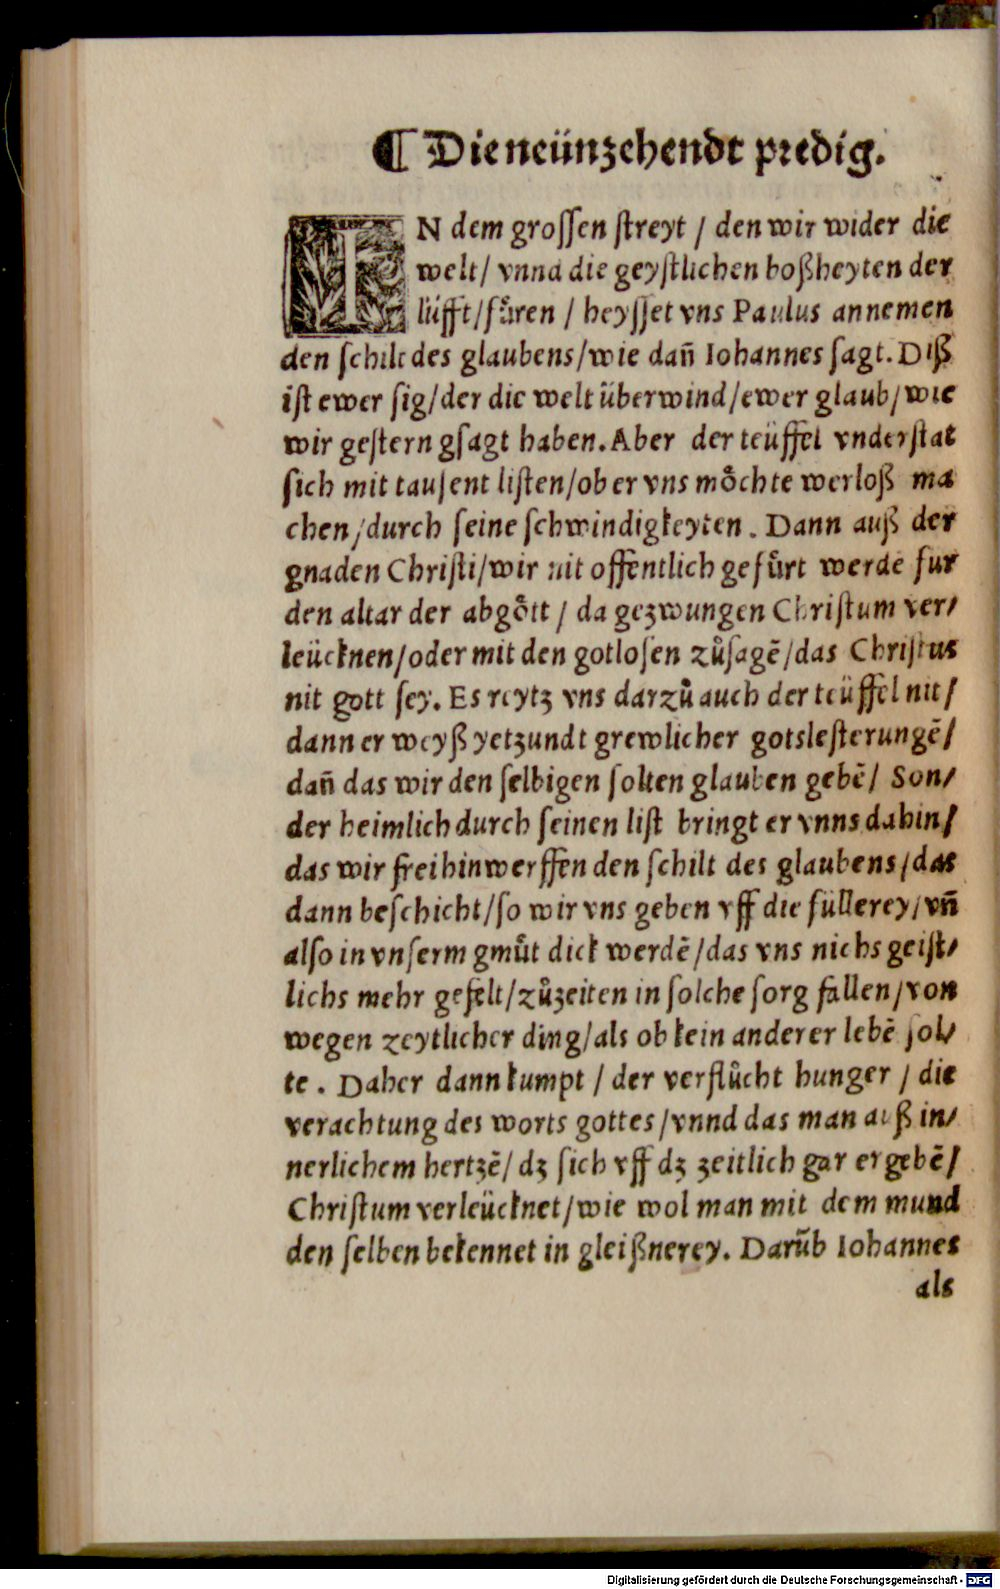 ¶ Die neünzehendt predig.
IN dem grossen streyt / den wir wider die
welt/ vnna die geystlichen boßheyten der
lüfft/fůren / heysset vns Paulus annemen
den schilt des glaubens/wie dañ Iohannes sagt. Diß
ist ewer sig/der die welt überwind/ewer glaub/wie
wir gestern gsagt haben. Aber der teüffel vnderstat
sich mit tausent listen/ob er vns mo̊chte werloß ma
chen/durch seine schwindigkeyten . Dann auß der
gnaden Christi/wir nit offentlich gefůrt werde fur
den altar der abgo̊tt / da gezwungen Christum ver/
leücknen/oder mit den gotlosen zůsagē/das Christus
nit gott sey. Es reytz vns darzů auch der teüffel nit/
dann er weyß yetzundt grewlicher gotslesterungē/
dañ das wir den selbigen solten glauben gebē/ Son/
der heimlich durch seinen list bringt er vnns dahin/
das wir frei hinwerffen den schilt des glaubens/das
dann beschicht/so wir vns geben vff die füllerey/vñ
also in vnserm gmůt dick werdē/das vns nichs geist/
lichs mehr gefelt/zůzeiten in solche sorg fallen/von
wegen zeytlicher ding/als ob kein anderer lebē sol/
te . Daher dann kumpt / der verflůcht hunger / die
verachtung des worts gottes/vnnd das man auß in/
nerlichem hertzē/ dz sich vff dz zeitlich gar ergebē/
Christum verleücknet/wie wol man mit dem mund
den selben bekennet in gleißnerey. Darūb Iohannes
als
Digitalisierung gefördert durch die Deutsche Forschungsgemeinschaft - DFG